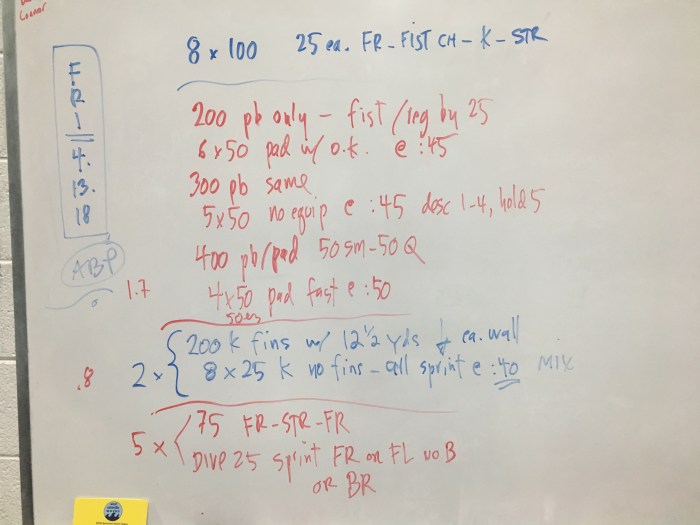 8 x 100 25 ea. FR - FIST CH - K - STR
FRI
4.
13.
18
ABP
200 pb only - fist/reg by 25
6 x 50 pad w/ o.k. @ :45
300 pb same
5x50 no equip @ :45 desc 1-4, hold 5
400 pb/pad 50 sm-50 Q
1.7
4x50 pad fast @ :50
50 ez
2 x { 200 k fins w/ 12 1/2 yds ea. wall
.8
8 x 25 k no fins - all sprint @ :40 MIX
5 x 75 FR-STR-FR
DIVE 25 sprint FR or FL no B
OR BR